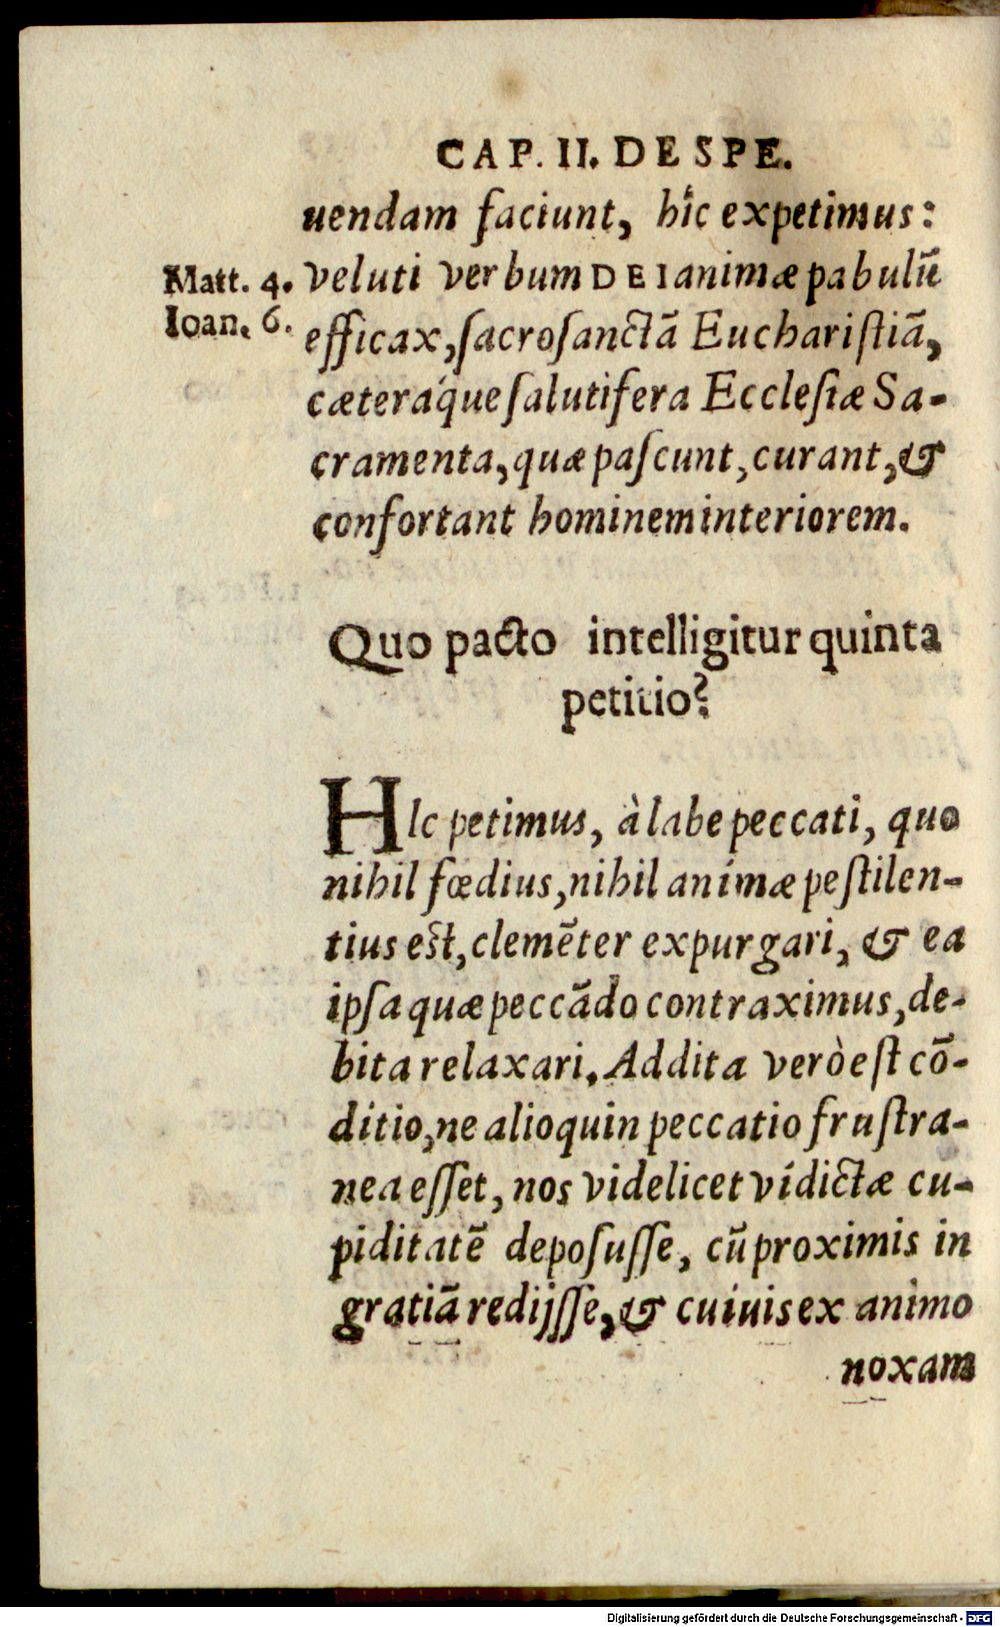 CAP. II. DE SPE.
uendam faciunt, hîc expetimus:
Matt. 4. veluti verbum DEI animæ pabulũ
Ioan. 6. efficax, ſacroſanctã Euchariſtiã,
cæteráque ſalutifera Eccleſiæ Sa-
cramenta, quæ paſcunt, curant, &
confortant hominem interiorem.
Quo pacto intelligitur quinta
petitio?
HIc petimus, à labe peccati, quo
nihil fœdius, nihil animæ peſtilen-
tius est, clemẽter expurgari, & ea
ipſa quæ peccãdo contraximus, de-
bita relaxari. Addita verò eſt cõ-
ditio, ne alioquin peccatio fruſtra-
nea eſſet, nos videlicet vĩdictæ cu-
piditatẽ depoſuſſe, cũ proximis in
gratiã redijſſe, & cuiuis ex animo
noxam
Digitalisierung gefördert durch die Deutsche Forschungsgemeinschaft - DFG